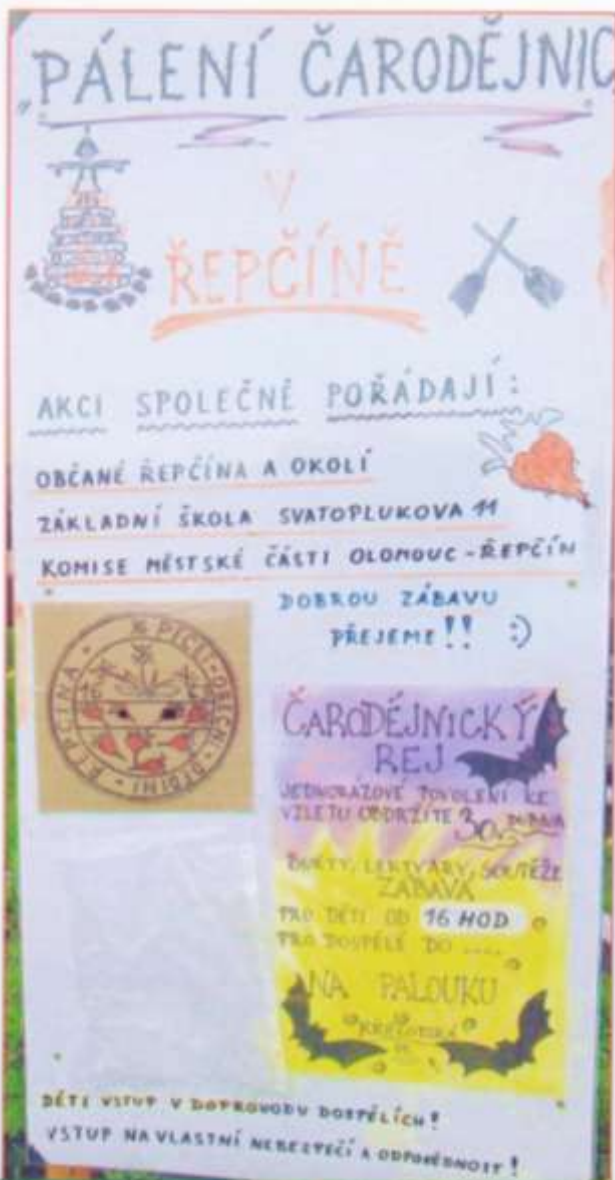 „PÁLENÍ ČARODĚJNIC
V
ŘEPČÍNĚ
AKCI SPOLEČNĚ POŘÁDAJÍ:
OBČANÉ ŘEPČÍNA A OKOLÍ
ZÁKLADNÍ ŠKOLA SVATOPLUKOVA 11
KOMISE MĚSTSKÉ ČÁSTI OLOMOUC-ŘEPČÍN
DOBROU ZÁBAVU
PŘEJEME!! :)
PEČEŤ • OBECNÍ • DĚDINI • ŘEPČINA •
ČARODĚJNICKÝ
REJ
JEDNORÁZOVÉ POVOLENÍ KE
VZLETU OBDRŽÍTE 30. DUBNA
BUŘTY, LEKTVARY, SOUTĚŽE
ZÁBAVA
PRO DĚTI OD 16 HOD
PRO DOSPĚLÉ DO ....
NA PALOUKU
DĚTI VSTUP V DOPROVODU DOSPĚLÍCH!
VSTUP NA VLASTNÍ NEBEZPEČÍ A ODPOVĚDNOST!